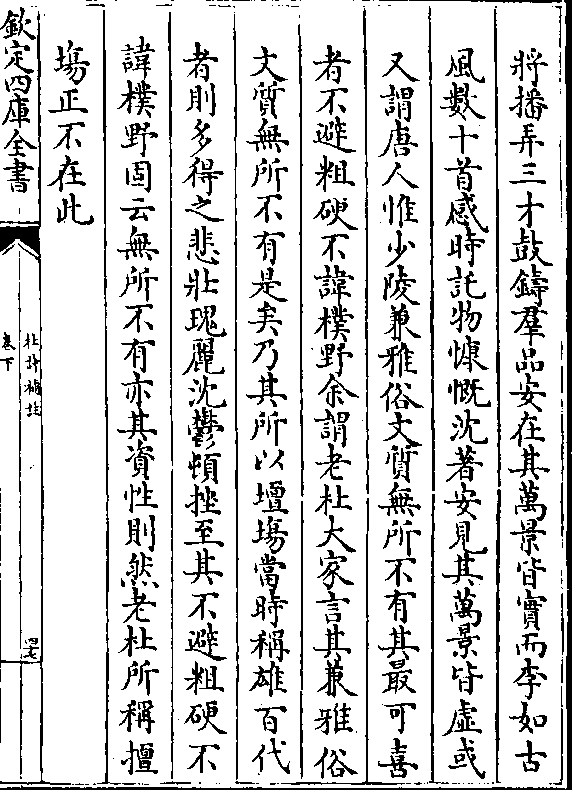 將播弄三才鼓鑄羣品安在其萬景皆實而李如古
風數十首感時託物慷慨沈著安見其萬景皆虛或
又謂唐人惟少陵兼雅俗文質無所不有其最可喜
者不避粗硬不諱樸野余謂老杜大家言其兼雅俗
文質無所不有是矣乃其所以壇塲當時稱雄百代
者則多得之悲壯瑰麗沈鬱頓挫至其不避粗硬不
諱樸野固云無所不有亦其資性則然老杜所稱擅
塲正不在此
欽定四庫全書
杜詩攟
卷下
四七